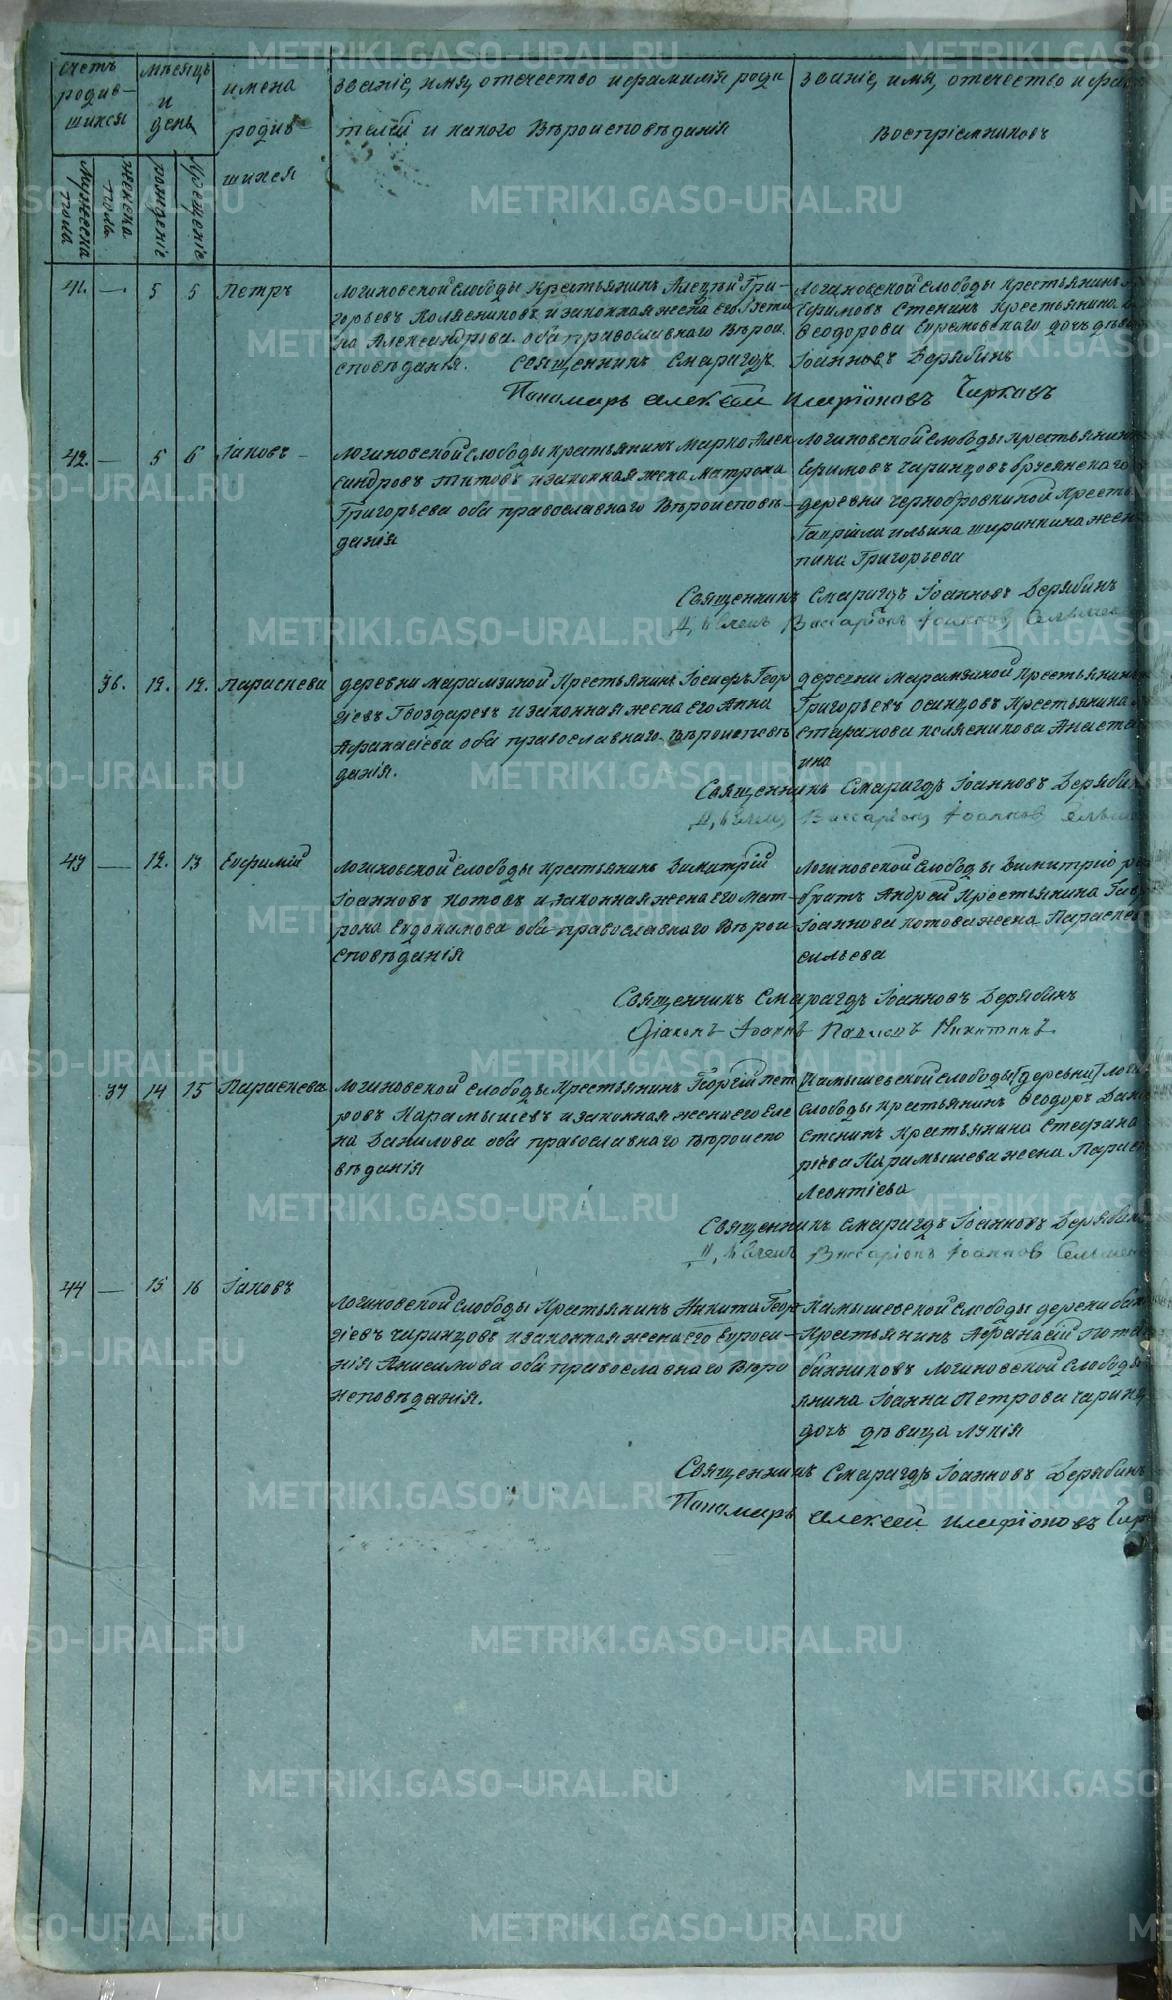 счетъ родив-шихся
мѣсяцъ и день
имена родив-шихся
званіе, имя, отечество и фамилія роди-
телей и какого Вѣроисповѣданія
званіе, имя, отечество и фами
воспріемниковъ
Мужеска пола
женска пола
рожденіе
крещеніе
41. — 5 5 Петръ
Логиновской слободы крестьянинъ Алексѣй Гри-
горьевъ Колясниковъ и законная жена его
на Александрова. оба православнаго Вѣрои
сповѣданія.
Логиновской слободы крестьянинъ
Ефимовъ Стенинъ крестьянина
Ѳеодорова дочь дѣв
Священникъ Смарагдъ Іоанновъ Дерябинъ
Панамарь Алексѣй Иларіоновъ Чирковъ
42. — 5 6 Іаковъ
Логиновской слободы крестьянинъ Марко Алек
сандровъ Титовъ и законная жена Матрона
Григорьева оба православнаго Вѣроисповѣ-
данія
Логиновской слободы крестьянинъ
Ефимовъ Чаринцовъ
деревни Чернобровкиной кресть
Гавріила Ильина Ширинкина жен
Григорьева
Священникъ Смарагдъ Іоанновъ Дерябинъ
Виссаріонъ Іоанновъ
36. 12. 12. Параскева
деревни Марамзиной крестьянинъ Іосифъ Геор
гіевъ Гвоздаревъ и законная жена его Анна
Афанасіева оба православнаго Вѣроисповѣ
данія.
деревни Марамзиной крестьянинъ
Григорьевъ Осинцовъ крестьянина
Колясникова Анаста
Священникъ Смарагдъ Іоанновъ Дерябинъ
Виссаріонъ Іоанновъ
43 — 12. 13 Евфимій
Логиновской слободы крестьянинъ Димитрій
Іоанновъ Котовъ и законная жена его Мат-
рона Евдокимова оба православнаго Вѣрои
сповѣданія
Логиновской слободы Димитрію
братъ Андрей крестьянина
Іоаннова Котова жена Параскев
сильева
Священникъ Смарагдъ Іоанновъ Дерябинъ
Діаконъ Іоаннъ Павловъ Никитинъ
37 14 15 Параскева
Логиновской слободы крестьянинъ Георгій Пет
ровъ Карамышевъ и законная жена его Еле
на Данилова оба православнаго Вѣроиспо
вѣданія
Камышевской слободы [деревни] Логи
слободы крестьянинъ Ѳеодоръ Дани
Стенинъ крестьянина Стефана
ріева Карамышева жена Параск
Леонтіева
Священникъ Смарагдъ Іоанновъ Дерябинъ
Виссаріонъ Іоанновъ
44 — 15 16 Іаковъ
Логиновской слободы крестьянинъ Никита Геор
гіевъ Чаринцовъ и законная жена его Евфроси-
нія Анисимова оба православнаго Вѣро
исповѣданія.
Камышевской слободы деревни
крестьянинъ Афанасій
Банниковъ Логиновской слободы
янина Іоанна Петрова Чаринц
дочь дѣвица Лукія
Священникъ Смарагдъ Іоанновъ Дерябинъ
Панамарь Алексѣй Иларіоновъ Чир
METRIKI.GASO-URAL.RU